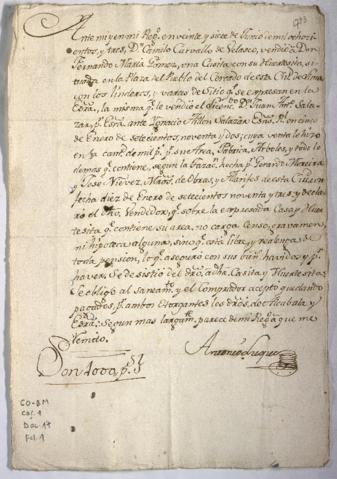 Ante mi y en mi Reg.º en veinte y siete de Junio de mil ochoci-
entos, y tres, Dn. Camilo Carvallo de Velasco, vendió à Dn.
Fernando Maria Gomez, una Casita con su Huertesita, si-
tuada en la Plaza del Pueblo del Cercado de esta Ciud. de Lima
con los linderos, y varas de Sitio q.e se expresan en la
Esra., la misma q.e le vendió el Dn. Juan Anto. Sala-
zar, p.r Esra. ante Ignacio Ayllon Salazar Esno. en cinco
de Enero de setecientos, noventa y dos; cuya venta le hizo
en la cant.d de mil p.s p.r su Area, Fabrica, Arboles, y todo lo
demas q.e contiene, segun la tazac.n fecha p.r
y Jose Nievez, Maes. de Obras, y Alarifes de esta Ciud. su
fecha diez de Enero de setecientos noventa y tres, y decla-
ró el dho. Vendedor, q.e sobre la expresada Casa, y Huer-
tesita q.e contiene su area, no carga Censo, gravamen,
ni hipoteca alguna, sino q.e está libre, y realenga de
toda pension, lo q.e aseguró con sus bien. havidos, y p.r
haver. Se desistió del dro. à la Casita, y Huertesita,
se obligó al saneam.to y el Comprador acepto quedando
pagados, p.r ambos Otorgantes los dros. de Alcabala, y
Esra. Segun mas largam.te parece de mi Reg.º a que me
remito.
Son 1000 p.s
Antonio Luque
CO-BM
Caj. 1
Doc. 17
Fol. 1